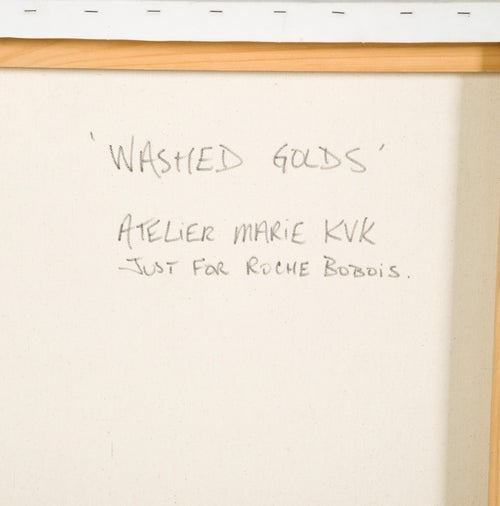 'WASHED GOLDS'
ATELiER MARiE KVK
JUST FOR ROCHE BOBOiS.